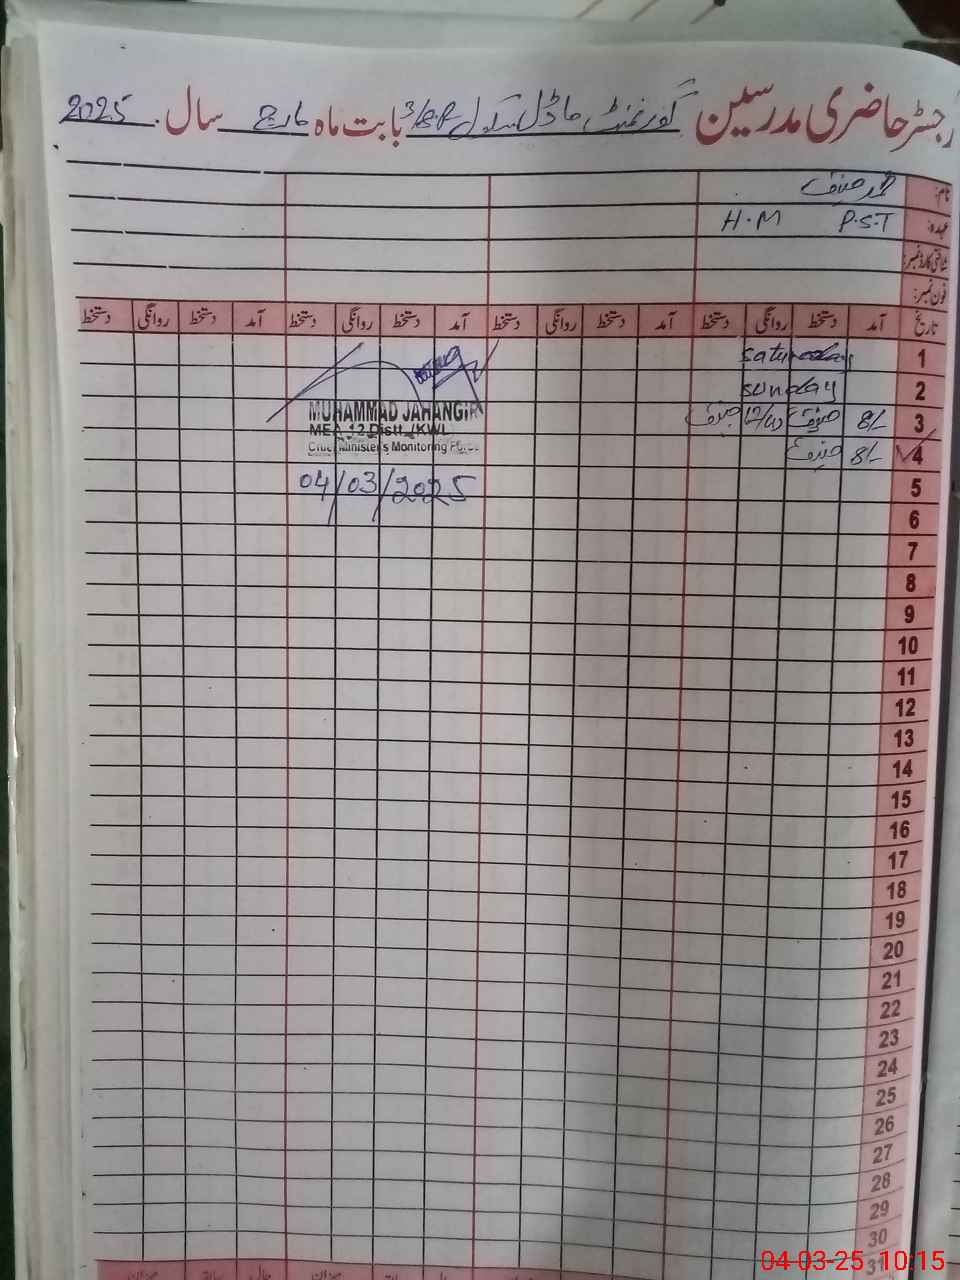 رجسٹر حاضری مدرسین گورنمنٹ ماڈل سکول 3/8-R بابت ماہ مارچ سال 2025
نام: محمد حنیف
عہدہ: P.S.T H.M
شناختی کارڈ نمبر:
فون نمبر:
تاریخ آمد دستخط روانگی دستخط آمد دستخط روانگی دستخط آمد دستخط روانگی دستخط آمد دستخط روانگی دستخط
1 saturday
2 sunday
3 8/- حنیف حنیف
4 8/- حنیف
MUHAMMAD JAHANGIR
MEA 12 Distt. (KWL)
Chief Minister's Monitoring Force
04/03/2025
5
6
7
8
9
10
11
12
13
14
15
16
17
18
19
20
21
22
23
24
25
26
27
28
29
30
31
میزان میزان
04-03-25 10:15